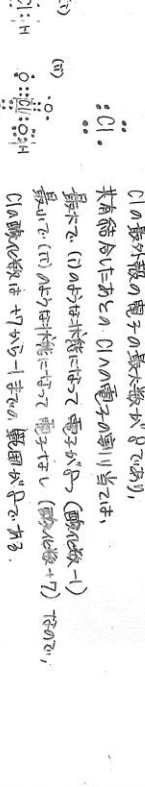 Clの最外殻の電子の最大数が8であり、
共有結合したあとの、Clへの電子の割り当ては、
最大で、(i)のような状態になって電子が8つ(酸化数-1)
最小で、(ii)のような状態になって電子なし(酸化数+7)なので、
Clの酸化数は+7から-1までの範囲が8である。
Cl
(i)
Cl:H
(ii)
O
O:Cl:O:H